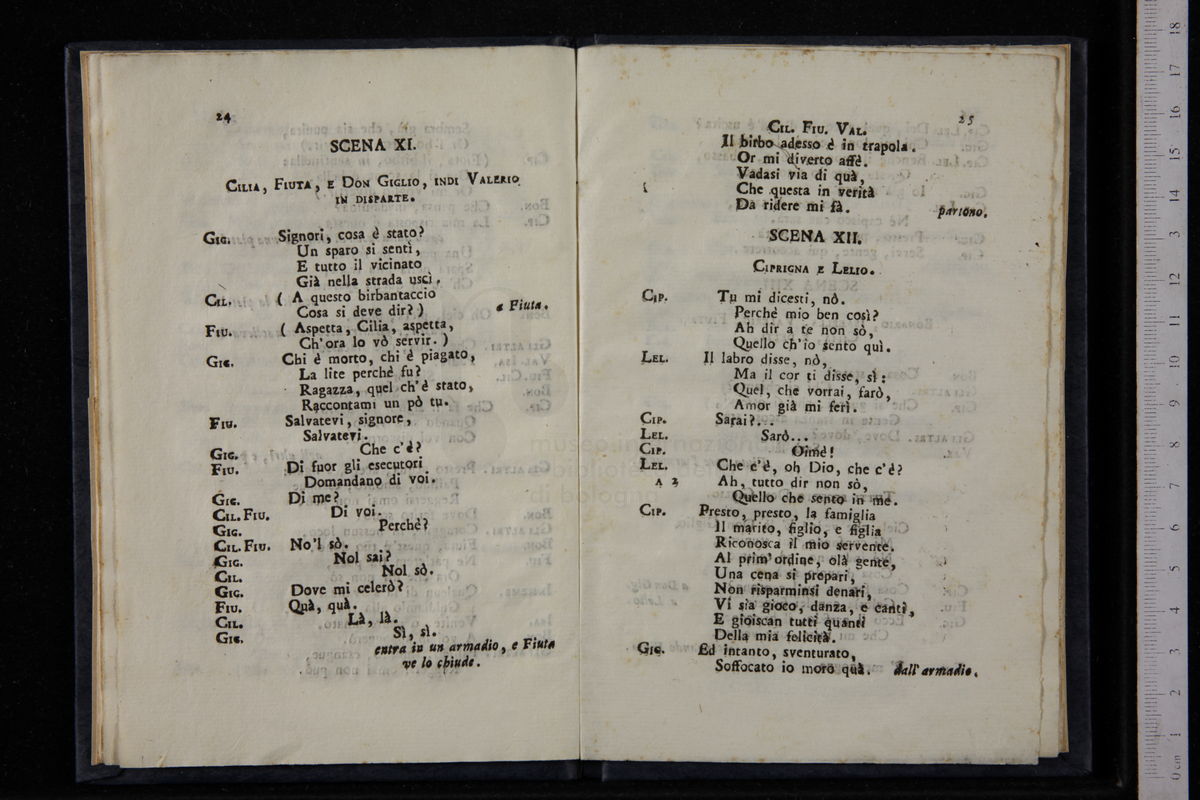 24
SCENA XI.
CILIA, FIUTA, E DON GIGLIO, INDI VALERIO
IN DISPARTE.
GIG. Signori, cosa è stato?
Un sparo si sentì,
E tutto il vicinato
Già nella strada uscì.
CIL. ( A questo birbantaccio
Cosa si deve dir? ) a Fiuta.
FIU. ( Aspetta, Cilia, aspetta,
Ch'ora lo vò servir. )
GIG. Chi è morto, chi è piagato,
La lite perchè fu?
Ragazza, quel ch'è stato,
Raccontami un pò tu.
FIU. Salvatevi, signore,
Salvatevi.
GIG. Che c'è?
FIU. Di fuor gli esecutori
Domandano di voi.
GIG. Di me?
CIL. FIU. Di voi.
GIG. Perchè?
CIL. FIU. No'l sò.
GIG. Nol sai?
CIL. Nol sò.
GIG. Dove mi celerò?
FIU. Quà, quà.
CIL. Là, là.
GIG. Sì, sì.
entra in un armadio, e Fiuta
ve lo chiude.
25
CIL. FIU. VAL.
Il birbo adesso è in trapola.
Or mi diverto affè.
Vadasi via di quà,
Che questa in verità
Da ridere mi fà. partono.
SCENA XII.
CIPRIGNA E LELIO.
CIP. Tu mi dicesti, nò.
Perchè mio ben così?
Ah dir a te non sò,
Quello ch'io sento quì.
LEL. Il labro disse, nò,
Ma il cor ti disse, sì:
Quel, che vorrai, farò,
Amor già mi ferì.
CIP. Sarai?...
LEL. Sarò...
CIP. Oimè!
LEL. Che c'è, oh Dio, che c'è?
A 2 Ah, tutto dir non sò,
Quello che sento in me.
CIP. Presto, presto, la famiglia
Il marito, figlio, e figlia
Riconosca il mio servente.
Al prim'ordine, olà gente,
Una cena si prepari,
Non risparminsi denari,
Vi sia gioco, danza, e canti,
E gioiscan tutti quanti
Della mia felicità.
GIG. Ed intanto, sventurato,
Soffocato io moro quà. dall'armadio.